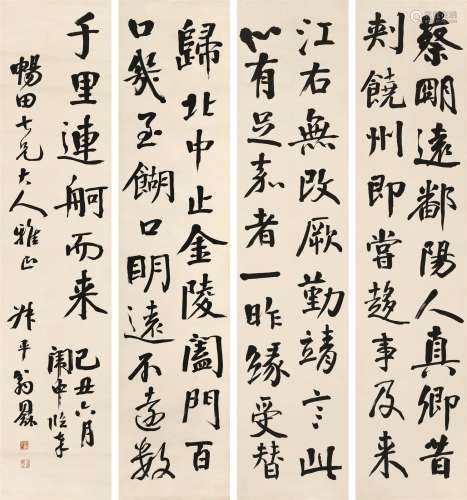 蔡明遠鄱陽人真卿昔
刾饒州即嘗趍事及来
江右無改厥勤靖言此
心有足嘉者一昨緣受替
歸北中止金陵闔門百
口幾至餬口明遠不遠數
千里連舸而来
己丑六月
闈中臨本
暢田七兄大人雅正
叔平翁同龢